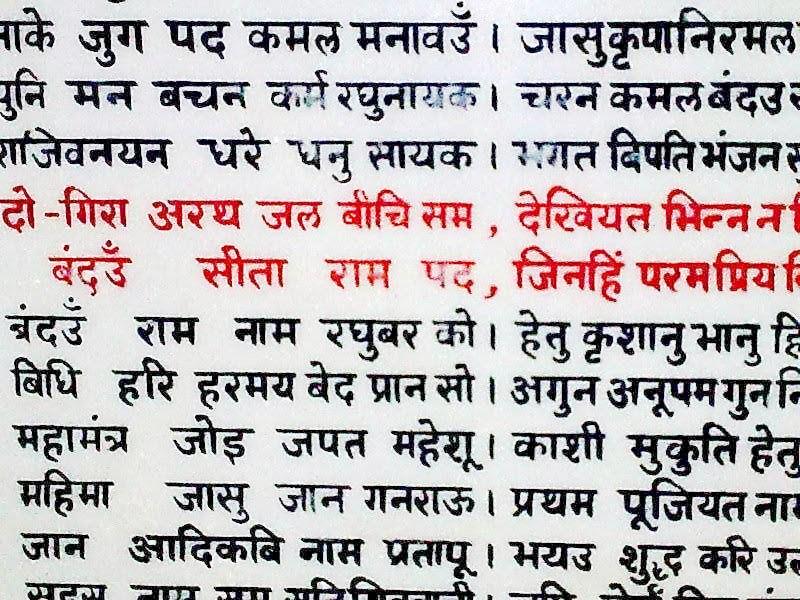 जुग पद कमल मनावउँ । जासुकृपानिरमल
मन बचन कर्म रघुनायक । चरन कमल बंदउ
राजिवनयन धरे धनु सायक । भगत बिपति भंजन
दो-गिरा अरथ जल बीचि सम , देखियत भिन्न न
बंदउँ सीता राम पद , जिनहिं परम प्रिय
बंदउँ राम नाम रघुबर को । हेतु कृशानु भानु
बिधि हरि हरमय बेद प्रान सो । अगुन अनूपम गुन
महामंत्र जोइ जपत महेशू । काशी मुकुति हेतु
महिमा जासु जान गनराऊ । प्रथम पूजियत
जान आदिकबि नाम प्रतापू । भयउ शुद्ध करि